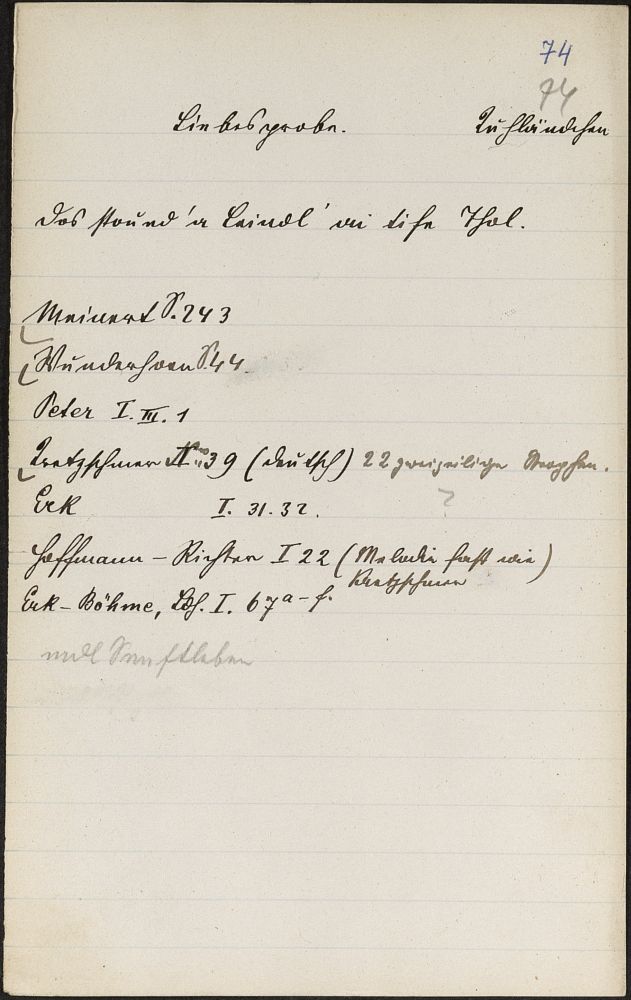 74
74
Liebesprobe. Kuhländchen
Dos stound 'a Leindl' ai tife Thol.
Meinert S. 243
Wunderhorn S. 44
Peter I. III. 1
Kretzschmer II No 39 (deutsch) 22 zweizeilige Strophen.
Erk I. 31. 32. ?
Hoffmann - Richter I 22 (Melodie fast wie)
Kretzschmer
Erk - Böhme, Ldh. I. 67 a - f.
Senftleben